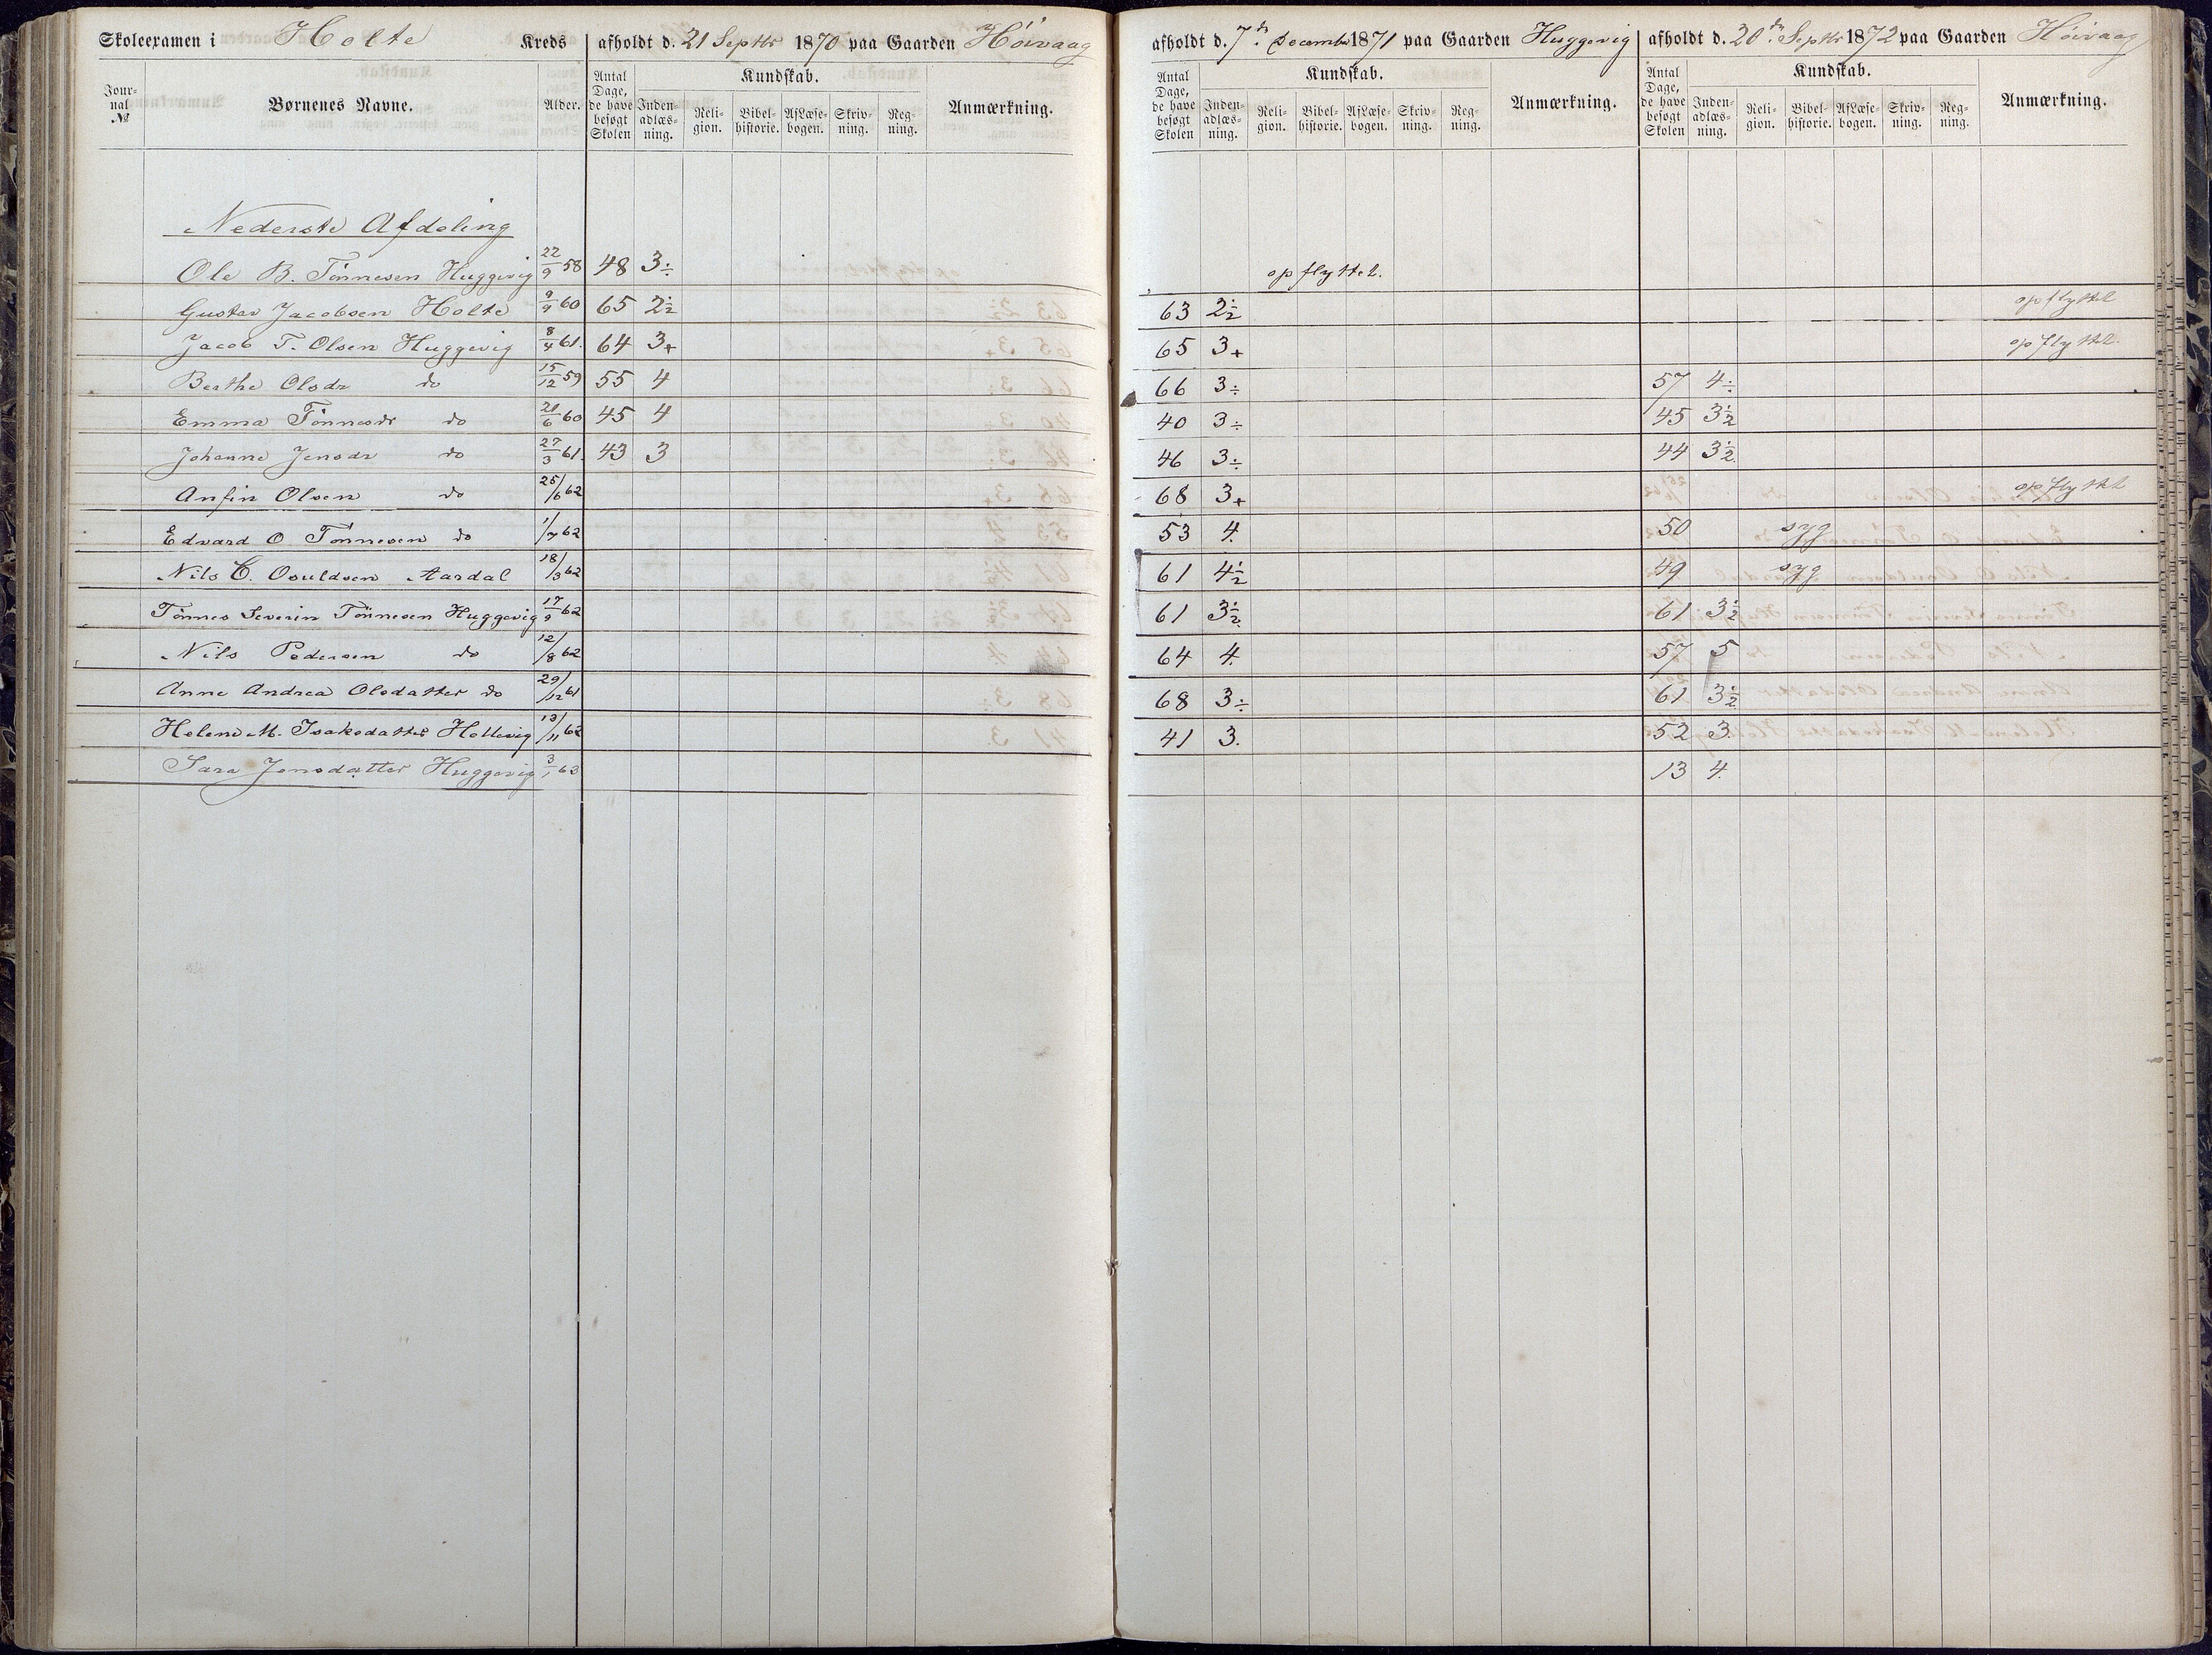 Skoleexamen i Holte Kreds afholdt d. 21 Septbr 1870 paa Gaarden Höivaag
Journal № Børnenes Navne. Alder. Antal Dage, de have besøgt Skolen Kundskab. Indenadlæsning. Religion. Bibelhistorie. AfLæsebogen. Skrivning. Regning. Anmærkning.
afholdt d. 7de Decembr 1871 paa Gaarden Huggevig
Antal Dage, de have besøgt Skolen Kundskab. Indenadlæsning. Religion. Bibelhistorie. AfLæsebogen. Skrivning. Regning. Anmærkning.
afholdt d. 20de Septbr 1872 paa Gaarden Höivaag
Antal Dage, de have besøgt Skolen Kundskab. Indenadlæsning. Religion. Bibelhistorie. AfLæsebogen. Skrivning. Regning. Anmærkning.
Nederste Afdeling
Ole B. Tönnesen Huggevig 22/9 58 48 3÷ opflyttet.
Gustav Jacobsen Holte 9/9 60 65 2½ 63 2½ opflyttet
Jacob T. Olsen Huggevig 8/4 61. 64 3+ 65 3+ opflyttet.
Berthe Olsdr do 15/12 59 55 4 66 3÷ 57 4÷
Emma Tönnesdr do 21/6 60 45 4 40 3÷ 45 3½
Johanne Jensdr do 27/3 61. 43 3 46 3÷ 44 3½
Anfin Olsen do 25/6 62 68 3+ opflyttet
Edvard O Tönnesen do 1/7 62 53 4. 50 syg
Nils C. Osuldsen Aardal 18/3 62 61 4½ 49 syg
Tönnes Severin Tönnesen Huggevig 17/9 62 61 3½ 61 3½
Nils Pedersen do 12/8 62 64 4. 57 5
Anne Andrea Olsdatter do 29/12 61 68 3÷ 61 3½
Helene M. Isaksdatter Hellevig 13/11 62 41 3. 52 3.
Sara Jensdatter Huggevig 3/1 63 13 4.